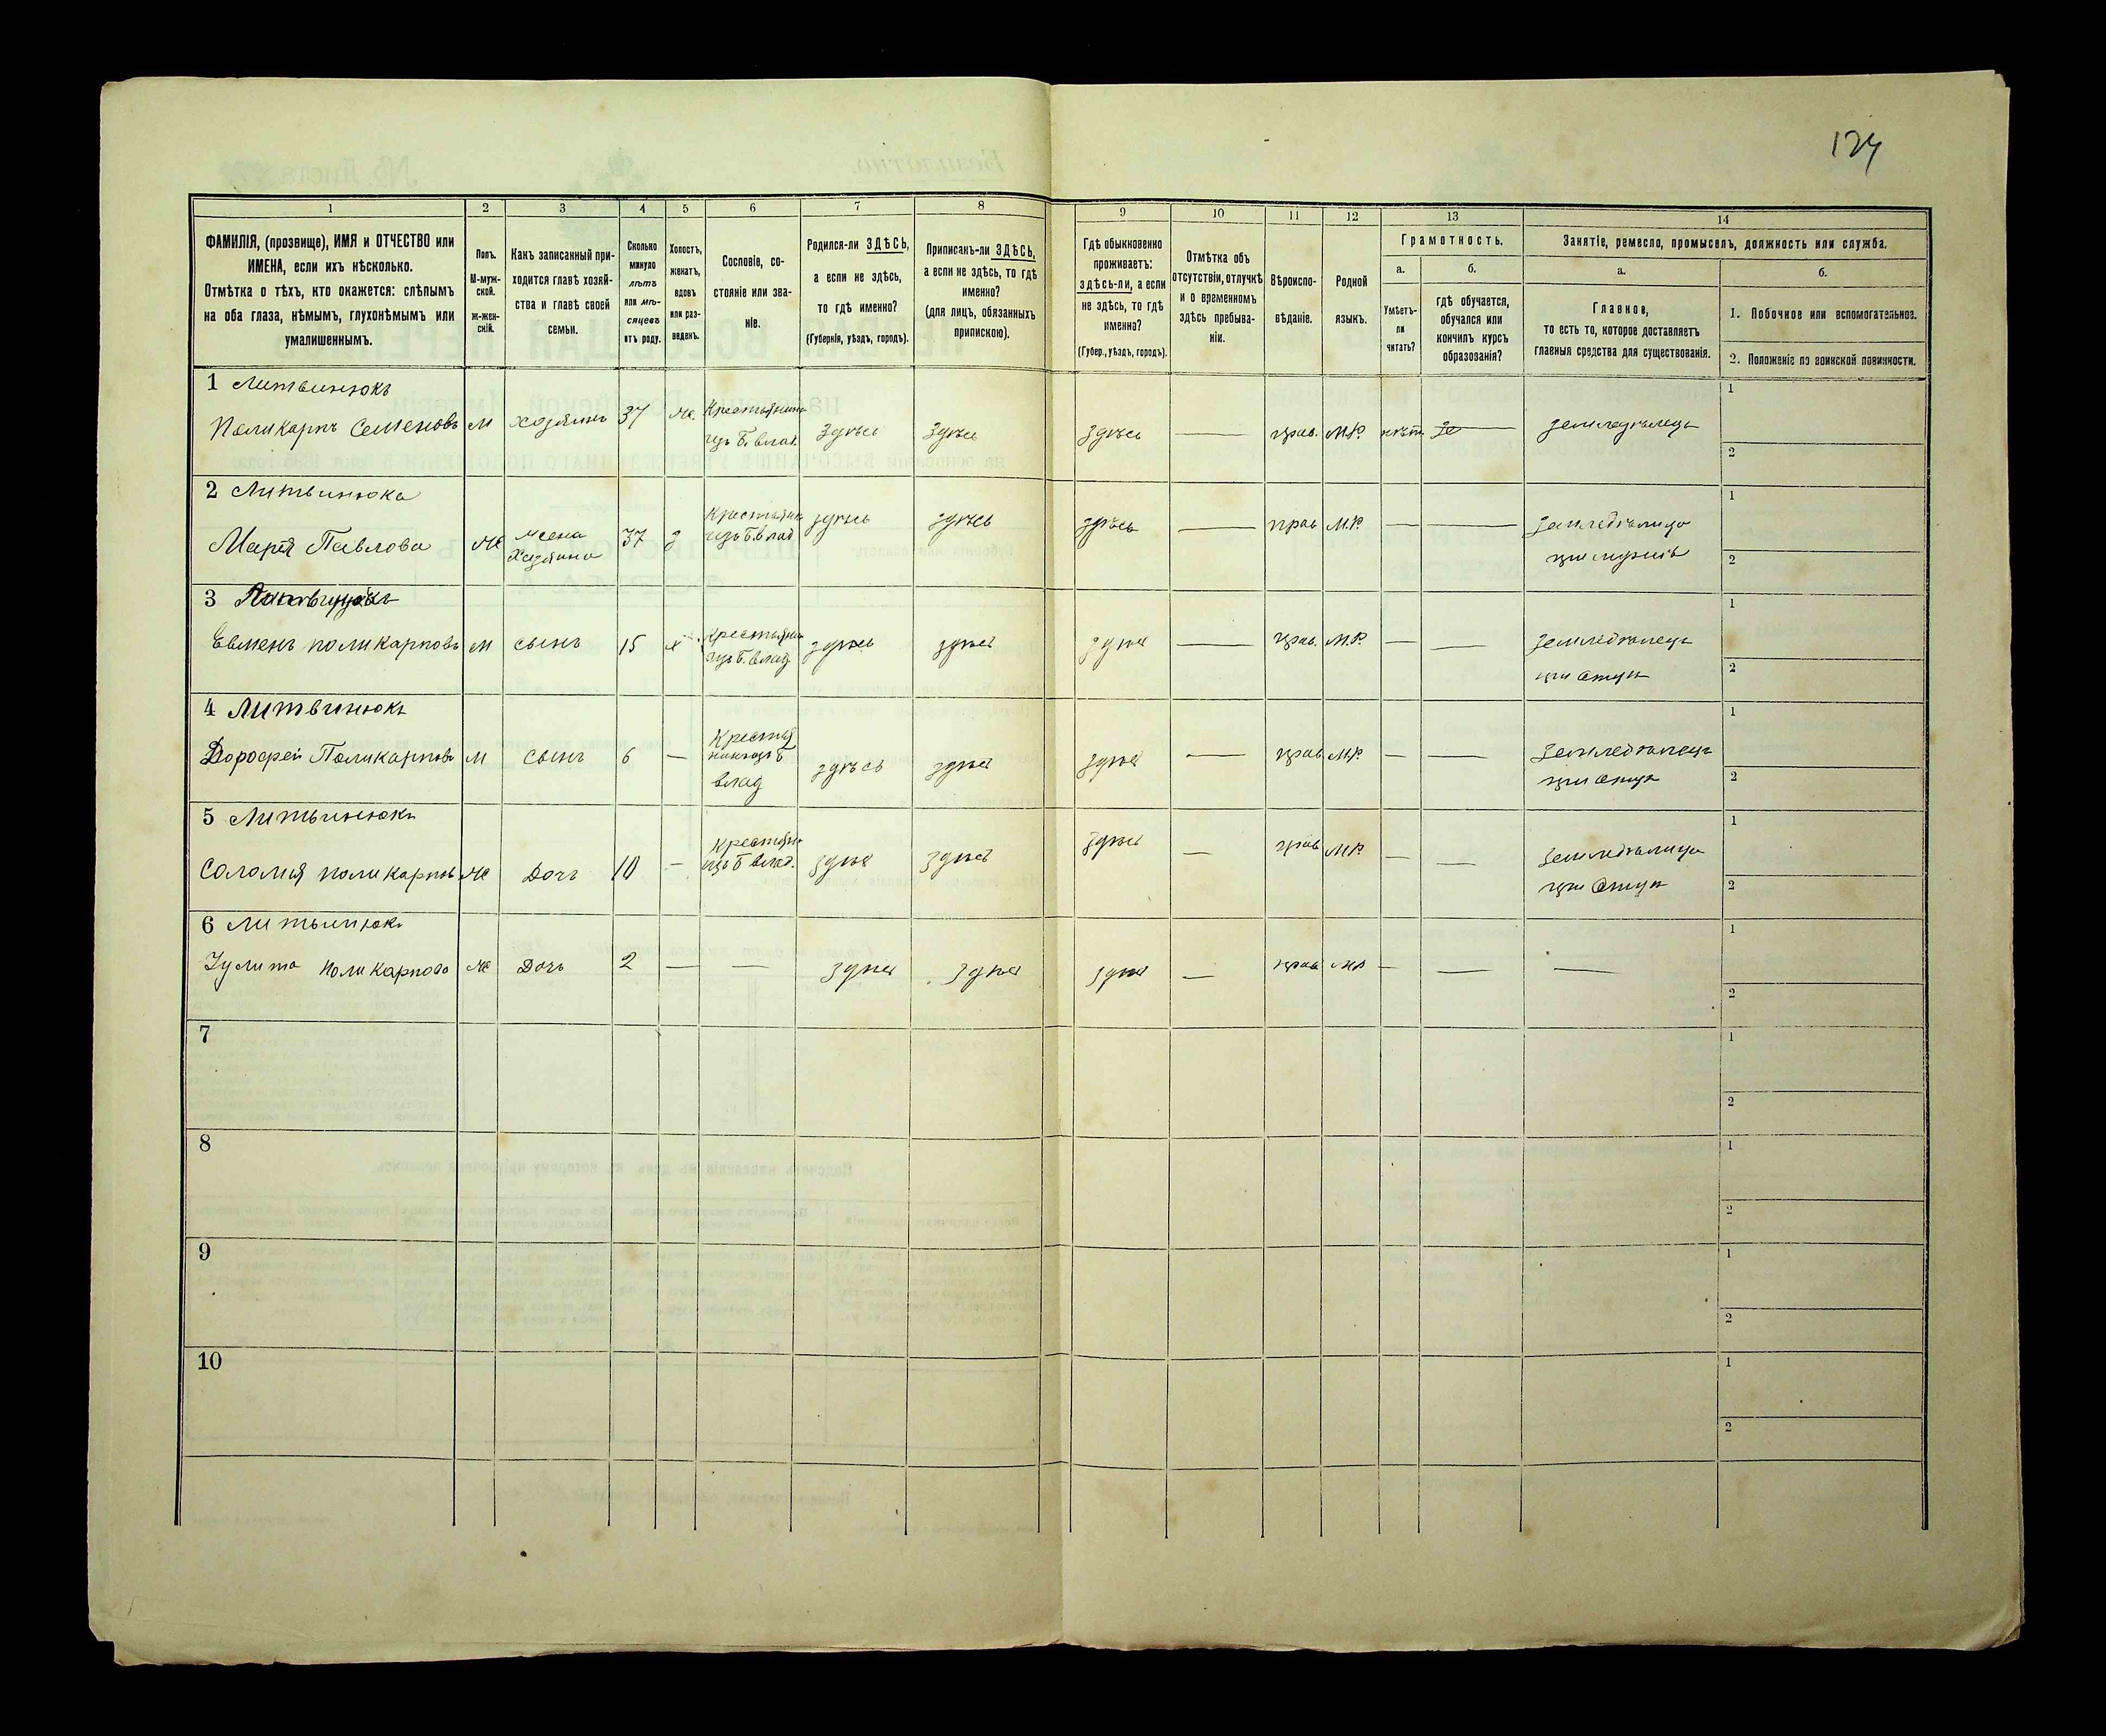 124
1
2
3
4
5
6
7
8
9
10
11
12
13
14
ФАМИЛІЯ, (прозвище), ИМЯ и ОТЧЕСТВО или
ИМЕНА, если ихъ нѣсколько.
Отмѣтка о тѣхъ, кто окажется: слѣпымъ
на оба глаза, нѣмымъ, глухонѣмымъ или
умалишеннымъ.
Полъ.
М-муж-
ской.
ж-жен-
скій.
Какъ записанный при-
ходится главѣ хозяй-
ства и главѣ своей
семьи.
Сколько
минуло
лѣтъ
или мѣ-
сяцевъ
отъ роду.
Холостъ,
женатъ,
вдовъ
или раз-
веденъ.
Сословіе, со-
стояніе или зва-
ніе.
Родился-ли ЗДѢСЬ,
а если не здѣсь,
то гдѣ именно?
(Губернія, уѣздъ, городъ).
Приписанъ-ли ЗДѢСЬ,
а если не здѣсь, то гдѣ
именно?
(для лицъ, обязанныхъ
припискою).
Гдѣ обыкновенно
проживаетъ:
здѣсь-ли, а если
не здѣсь, то гдѣ
именно?
(Губер., уѣздъ, городъ).
Отмѣтка объ
отсутствіи, отлучкѣ
и о временномъ
здѣсь пребыва-
ніи.
Вѣроиспо-
вѣданіе.
Родной
языкъ.
Грамотность.
а.
б.
Умѣетъ-
ли
читать?
гдѣ обучается,
обучался или
кончилъ курсъ
образованія?
Занятіе, ремесло, промыселъ, должность или служба.
а.
б.
Главное,
то есть то, которое доставляетъ
главныя средства для существованія.
1. Побочное или вспомогательное.
2. Положеніе по воинской повинности.
1 Литвинюкъ
Поликарпъ Семеновъ М хозяинъ 37 ж. Крестьянинъ
изъ б. влад. здѣсь здѣсь здѣсь — прав. М.Р. нѣтъ — земледѣлецъ
1
2
2 Литвинюка
Марія Павлова Ж жена
Хозяина 37 з Крестьян
изъ б. влад здѣсь здѣсь здѣсь — прав М.Р. — — земледѣлица
при мужѣ
1
2
3 Литвинюкъ
Евменъ поликарповъ М сынъ 15 х Крестьян
изъ б. влад здѣсь здѣсь здѣсь — прав. М.Р. — — земледѣлецъ
при отцѣ
1
2
4 Литвинюкъ
Дорофей Поликарповъ М сынъ 6 — Крестья
нинъ изъ б
влад здѣсь здѣсь здѣсь — прав М.Р. — — земледѣлецъ
при отцѣ
1
2
5 Литвинюкъ
Соломія поликарпов Ж Дочь 10 — Крестьян
изъ б влад. здѣсь здѣсь здѣсь — прав М.Р. — — земледѣлица
при отцѣ
1
2
6 Литвинюкъ
Іулита Поликарпова Ж Дочь 2 — — здѣсь здѣсь здѣсь — прав М.Р. — — —
1
2
7
1
2
8
1
2
9
1
2
10
1
2